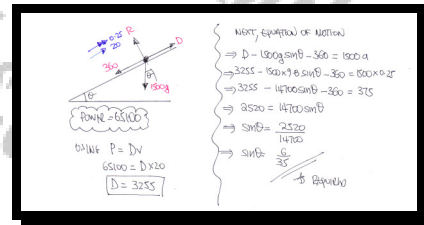 0.25
20
R
D
360
θ
1500g
θ
POWER = 65100
USING P = Dv
65100 = D×20
D = 3255
NEXT, EQUATION OF MOTION
⇒ D - 1500g sinθ - 360 = 1500a
⇒ 3255 - 1500×9.8 sinθ - 360 = 1500×0.25
⇒ 3255 - 14700 sinθ - 360 = 375
⇒ 2520 = 14700 sinθ
⇒ sinθ = 2520/14700
⇒ sinθ = 6/35
As REQUIRED